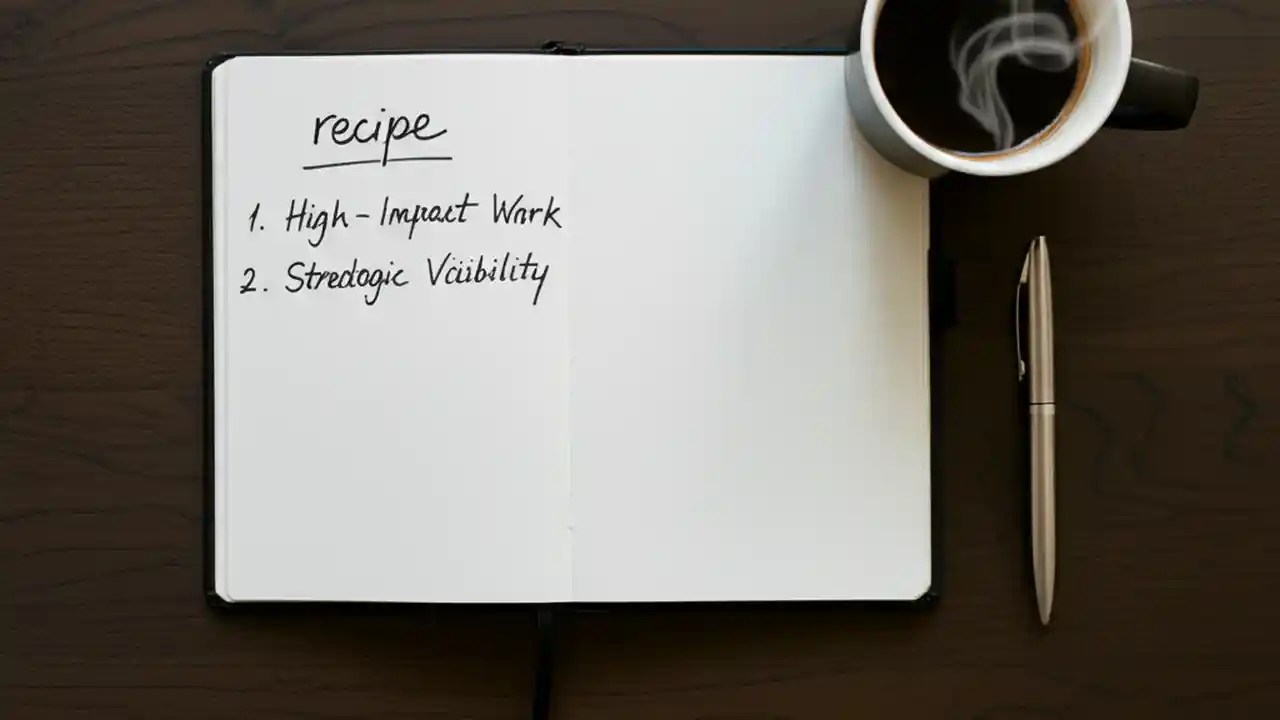 recipe
1. High-Impact Work
2. Stredogic Visibility